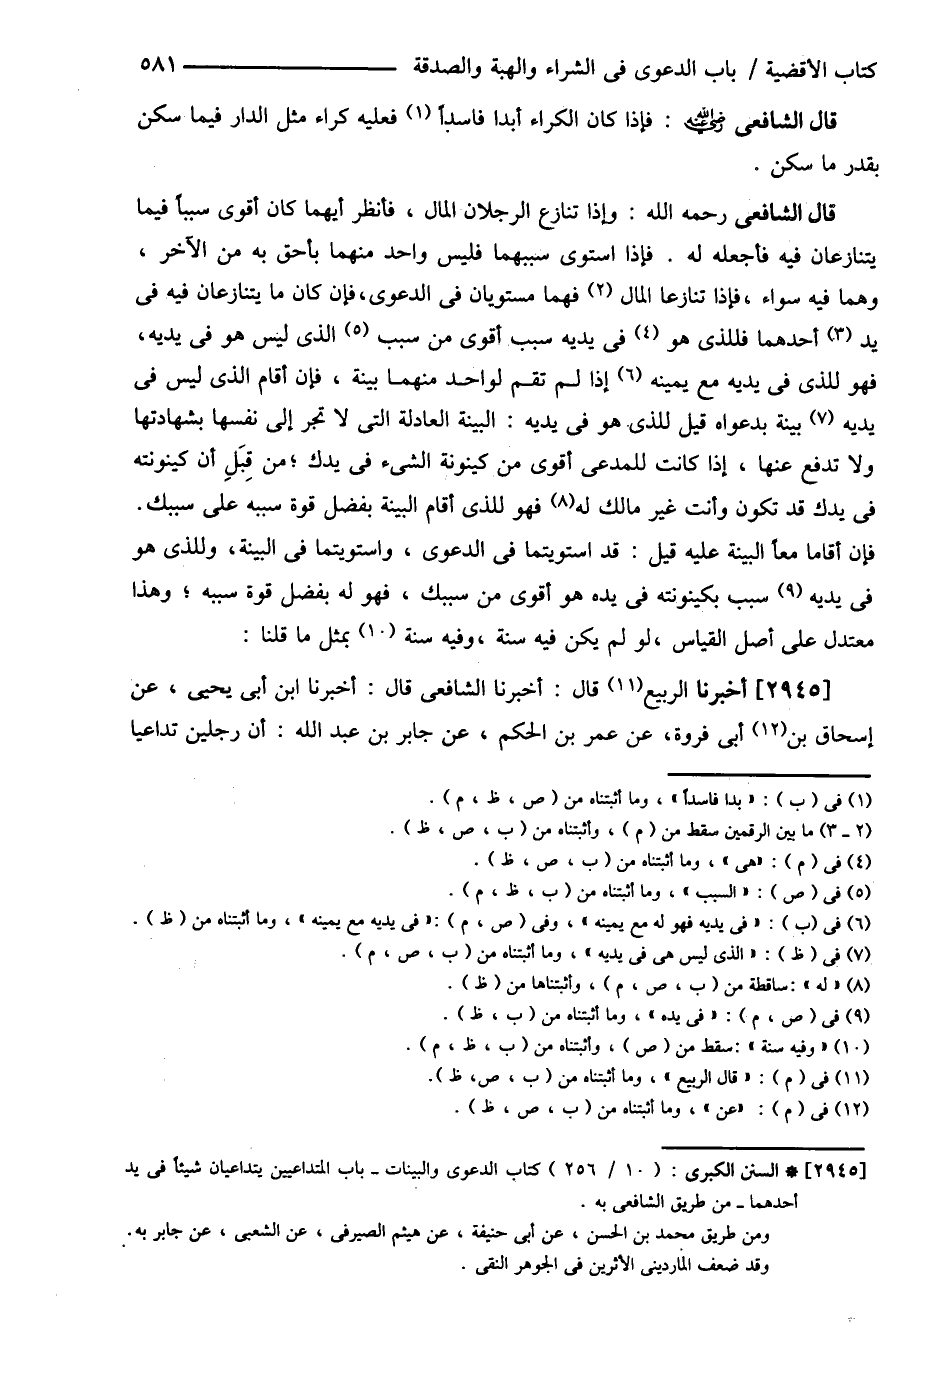 كتاب الأقضية / باب الدعوى فى الشراء والهبة والصدقة ٥٨١
قال الشافعى رضي الله عنه : فإذا كان الكراء أبدا فاسداً (١) فعليه كراء مثل الدار فيما سكن
بقدر ما سكن .
قال الشافعى رحمه الله : وإذا تنازع الرجلان المال ، فأنظر أيهما كان أقوى سبباً فيما
يتنازعان فيه فأجعله له . فإذا استوى سببهما فليس واحد منهما بأحق به من الآخر ،
وهما فيه سواء ،فإذا تنازعا المال (٢) فهما مستويان فى الدعوى،فإن كان ما يتنازعان فيه فى
يد (٣) أحدهما فللذى هو (٤) فى يديه سبب أقوى من سبب (٥) الذى ليس هو فى يديه،
فهو للذى فى يديه مع يمينه (٦) إذا لـم تقـم لواحـد منهمـا بينة ، فإن أقام الذى ليس فى
يديه (٧) بينة بدعواه قيل للذى هو فى يديه : البينة العادلة التى لا تجر إلى نفسها بشهادتها
ولا تدفع عنها ، إذا كانت للمدعى أقوى من كينونة الشىء فى يدك ؛من قِبَلِ أن كينونته
فى يدك قد تكون وأنت غير مالك له(٨) فهو للذى أقام البينة بفضل قوة سببه على سببك.
فإن أقاما معاً البينة عليه قيل : قد استويتما فى الدعوى ، واستويتما فى البينة، وللذى هو
فى يديه (٩) سبب بكينونته فى يده هو أقوى من سببك ، فهو له بفضل قوة سببه ؛ وهذا
معتدل على أصل القياس ،لو لم يكن فيه سنة ،وفيه سنة (١٠) بمثل ما قلنا :
[٢٩٤٥] أخبرنا الربيع(١١) قال : أخبرنا الشافعى قال : أخبرنا ابن أبى يحيى ، عن
إسحاق بن(١٢) أبى فروة، عن عمر بن الحكم ، عن جابر بن عبد الله : أن رجلين تداعيا
(١) فى ( ب ) : « بدا فاسداً » ، وما أثبتناه من ( ص ، ظ ، م ) .
(٢ ـ ٣) ما بين الرقمين سقط من ( م ) ، وأثبتناه من ( ب ، ص ، ظ ) .
(٤) فى ( م ) : «هى » ، وما أثبتناه من ( ب ، ص ، ظ ) .
(٥) فى ( ص ) : « السبب » ، وما أثبتناه من ( ب ، ظ ، م ) .
(٦) فى (ب ) : « فى يديه فهو له مع يمينه » ، وفى ( ص ، م ) :« فى يديه مع يمينه » ، وما أثبتناه من ( ظ ) .
(٧) فى ( ظ ) : « الذى ليس هى فى يديه » ، وما أثبتناه من ( ب ، ص ، م ) .
(٨) « له » :ساقطة من ( ب ، ص ، م ) ، وأثبتناها من ( ظ ) .
(٩) فى ( ص ، م ) : « فى يده » ، وما أثبتناه من ( ب ، ظ ) .
(١٠) « وفيه سنة » :سقط من ( ص ) ، وأثبتناه من ( ب ، ظ ، م ) .
(١١) فى ( م ) : « قال الربيع » ، وما أثبتناه من ( ب ، ص، ظ ).
(١٢) فى ( م ) : «عن » ، وما أثبتناه من ( ب ، ص ، ظ ) .
[٢٩٤٥] * السنن الكبرى : ( ١٠ / ٢٥٦ ) كتاب الدعوى والبينات ـ باب المتداعيين يتداعيان شيئاً فى يد
أحدهما ـ من طريق الشافعى به .
ومن طريق محمد بن الحسن ، عن أبى حنيفة ، عن هيثم الصيرفى ، عن الشعبى ، عن جابر به.
وقد ضعف الماردينى الأثرين فى الجوهر النقى .